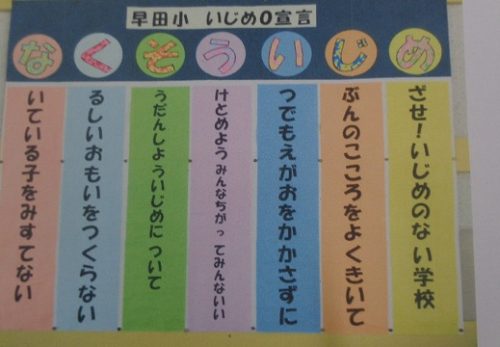 早田小 いじめ0宣言
め
ざせ！いじめのない学校
じ
ぶんのこころをよくきいて
い
つでもえがおをかかさずに
う
けとめよう みんなちがってみんないい
そ
うだんしよういじめについて
く
るしいおもいをつくらない
な
いている子をみすてない